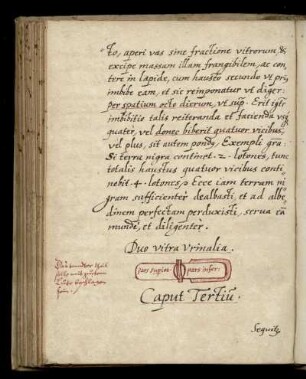 to, aperi vas sine fractione vitrorum, &
excipe massam illam frangibilem, ac con
tere in lapide, cum haustu secundo ut pri,
imbibe eam, et sic reimponatur ut diger:
per spatium octo dierum, ut sup: Erit igit
imbibitio talis reiteranda et facienda usq
quater, vel donec biberit quatuor vicibus,
vel plus, sit autem pondq Exempli grã:
Si terra nigra continet ·2· lotones, tunc
totalis haustus quatuor vicibus conti
nebit ·4· lotones, Ecce iam terram ni
gram sufficienter dealbasti, et ad albe
dinem perfectam perduxisti, serva eã
mundè, et diligenter.
Duo vitra Urinalia.
pars super:
pars infer:
Caput Tertiũ.
Sequitr